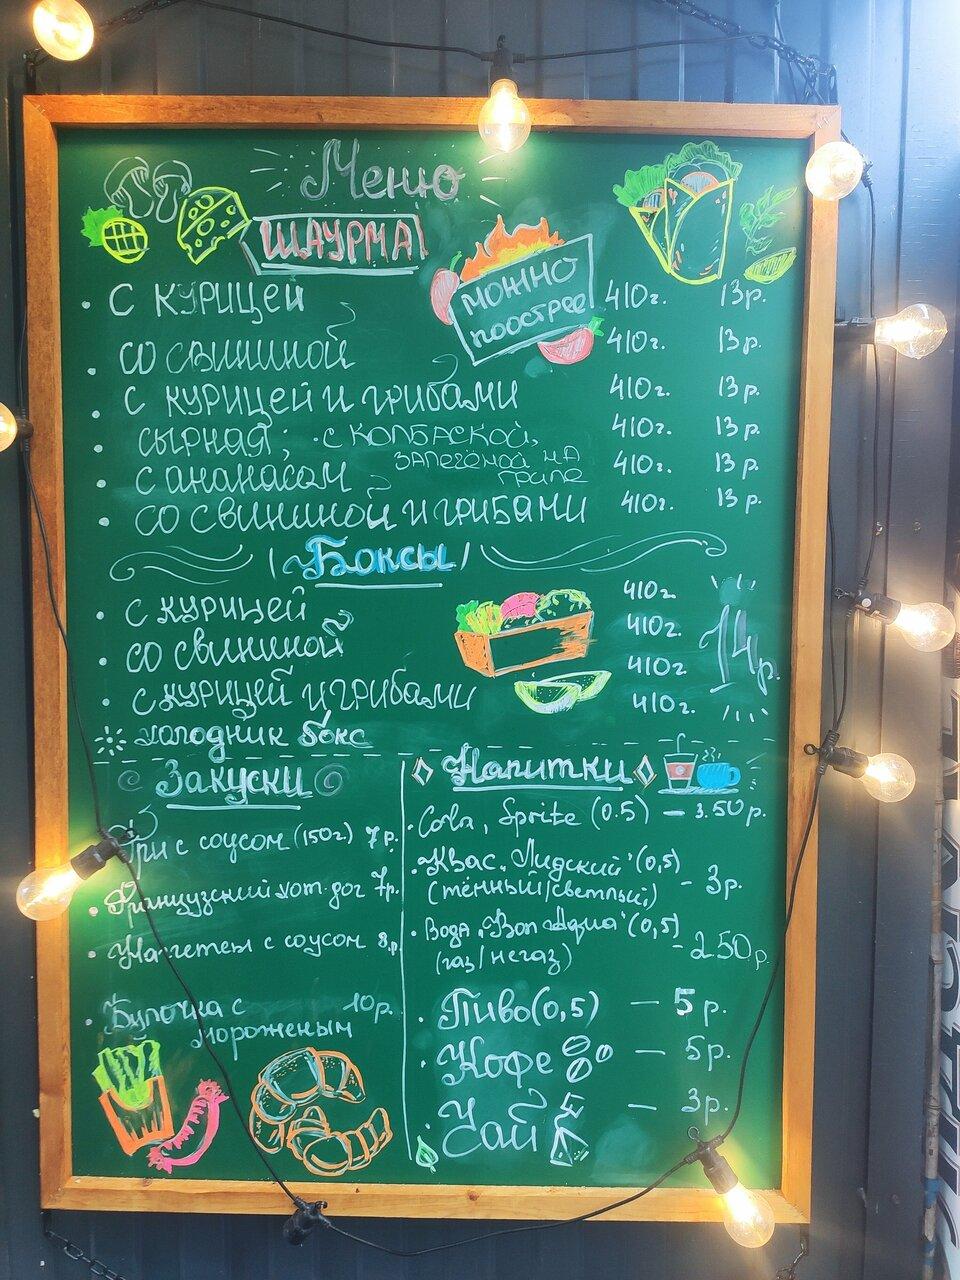 Меню
ШАУРМА
МОЖНО
ПООСТРЕЕ
· С КУРИЦЕЙ 410г. 13р.
· СО СВИНИНОЙ 410г. 13р.
· С КУРИЦЕЙ И ГРИБАМИ 410г. 13р.
· СЫРНАЯ; · С КОЛБАСКОЙ, 410г. 13р.
ЗАПЕЧЕНОЙ НА
ГРИЛЕ
· С АНАНАСОМ 410г. 13р.
· СО СВИНИНОЙ И ГРИБАМИ 410г. 13р.
Боксы
· С КУРИЦЕЙ 410г
· СО СВИНИНОЙ 410г.
· С КУРИЦЕЙ И ГРИБАМИ 410г
холодник бокс 410г.
14р.
Закуски
· Фри с соусом (150г) 7р.
· Французский хот-дог 7р.
· Наггетсы с соусом 8р.
· Булочка с 10р.
мороженым
Напитки
· Cola, Sprite (0.5) – 3.50р.
· Квас "Лидский" (0,5)
(тёмный/светлый) – 3р.
· Вода "Bon Aqua" (0,5)
(газ/негаз) - 2.50р.
· Пиво (0,5) – 5р.
· Кофе – 5р.
· Чай – 3р.